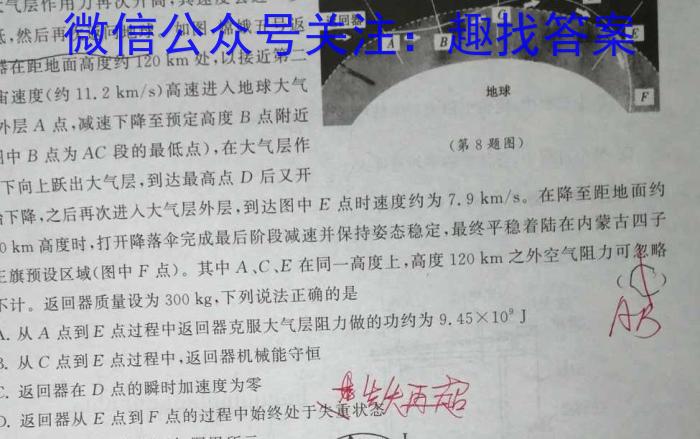 大气层作用力再次升高,其速度会进一
低,然后再
微信公众号关注:趣找答案
器在距地面高度约 120 km 处,以接近第二
宙速度(约 11.2 km/s)高速进入地球大气
外层 A 点,减速下降至预定高度 B 点附近
图中 B 点为 AC 段的最低点),在大气层作
下向上跃出大气层,到达最高点 D 后又开
始下降,之后再次进入大气层外层,到达图中 E 点时速度约为 7.9 km/s。在降至距地面约
0 km 高度时,打开降落伞完成最后阶段减速并保持姿态稳定,最终平稳着陆在内蒙古四子
王旗预设区域(图中 F 点)。其中 A、C、E 在同一高度上,高度 120 km 之外空气阻力可忽略
不计。返回器质量设为 300 kg,下列说法正确的是 ( )
A. 从 A 点到 E 点过程中返回器克服大气层阻力做的功约为 9.45×10⁹ J
B. 从 C 点到 E 点过程中,返回器机械能守恒
C. 返回器在 D 点的瞬时加速度为零
D. 返回器从 E 点到 F 点的过程中始终处于失重状态
回器
B
E
地球
F
(第 8 题图)
AB